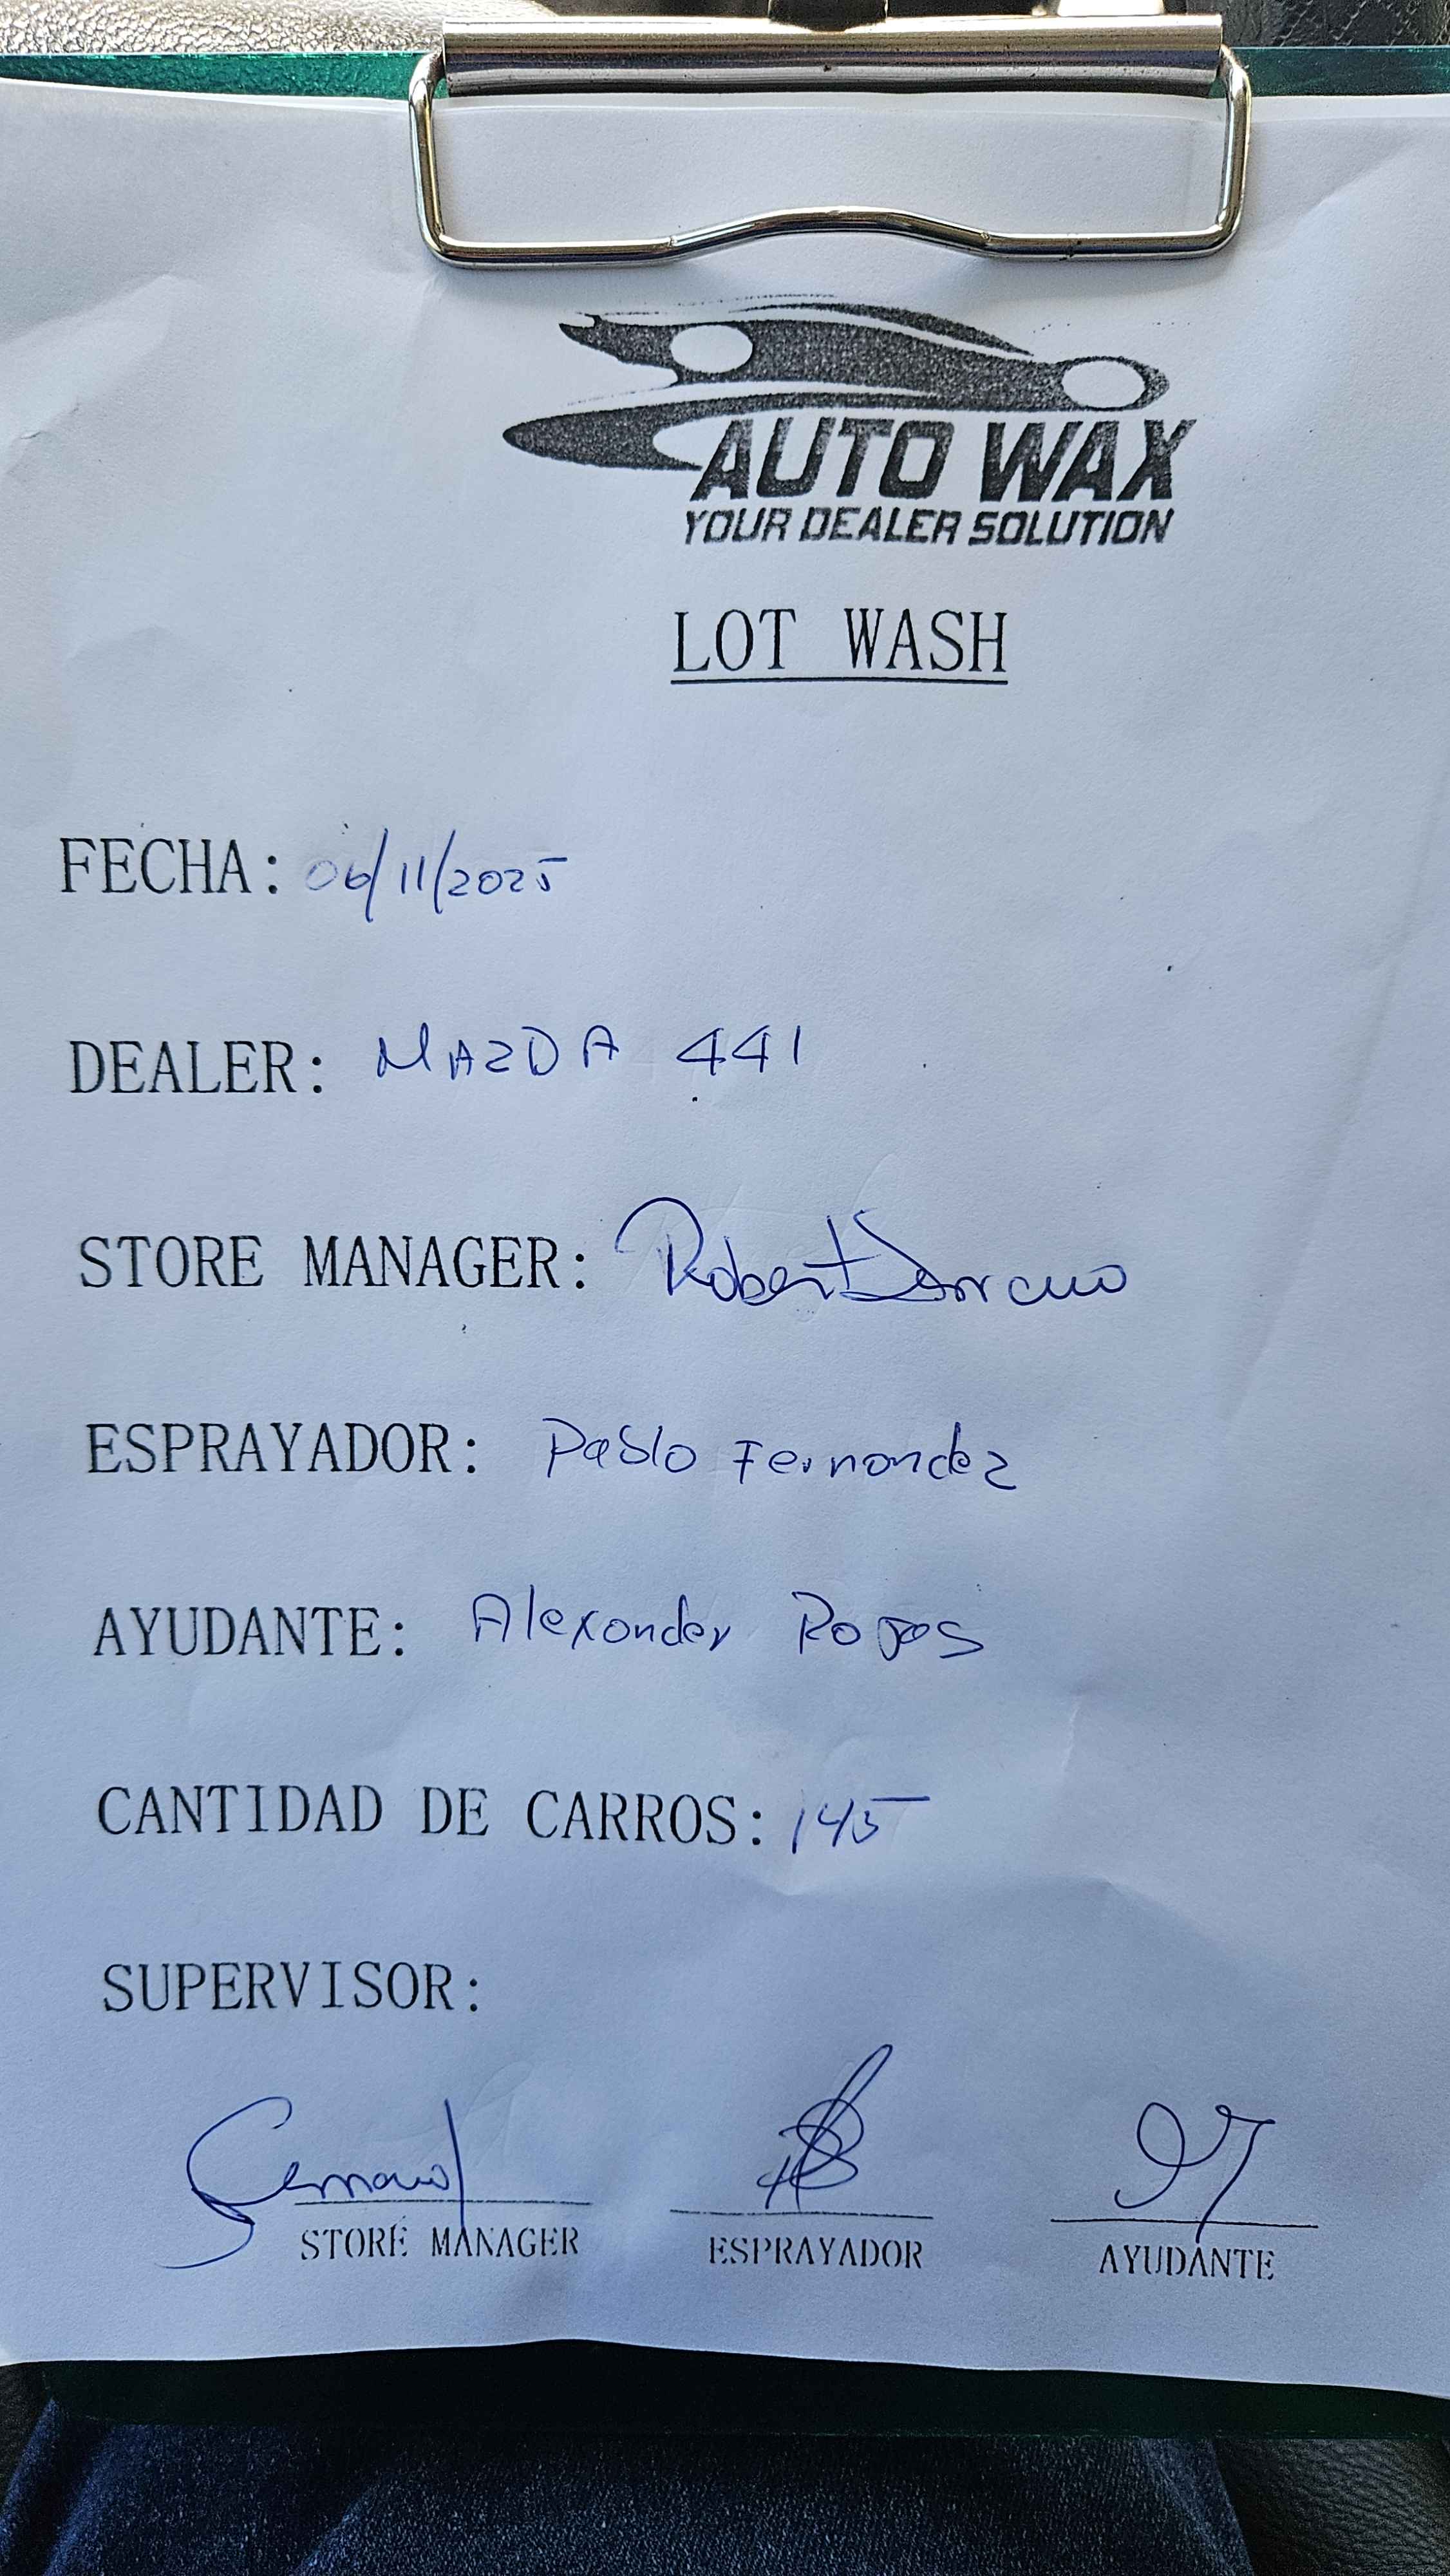 AUTO WAX
YOUR DEALER SOLUTION
LOT WASH
FECHA: 06/11/2025
DEALER: MAZDA 441
STORE MANAGER: Robert
ESPRAYADOR: Pablo Fernandez
AYUDANTE: Alexander Rojas
CANTIDAD DE CARROS: 145
SUPERVISOR:
STORE MANAGER ESPRAYADOR AYUDANTE